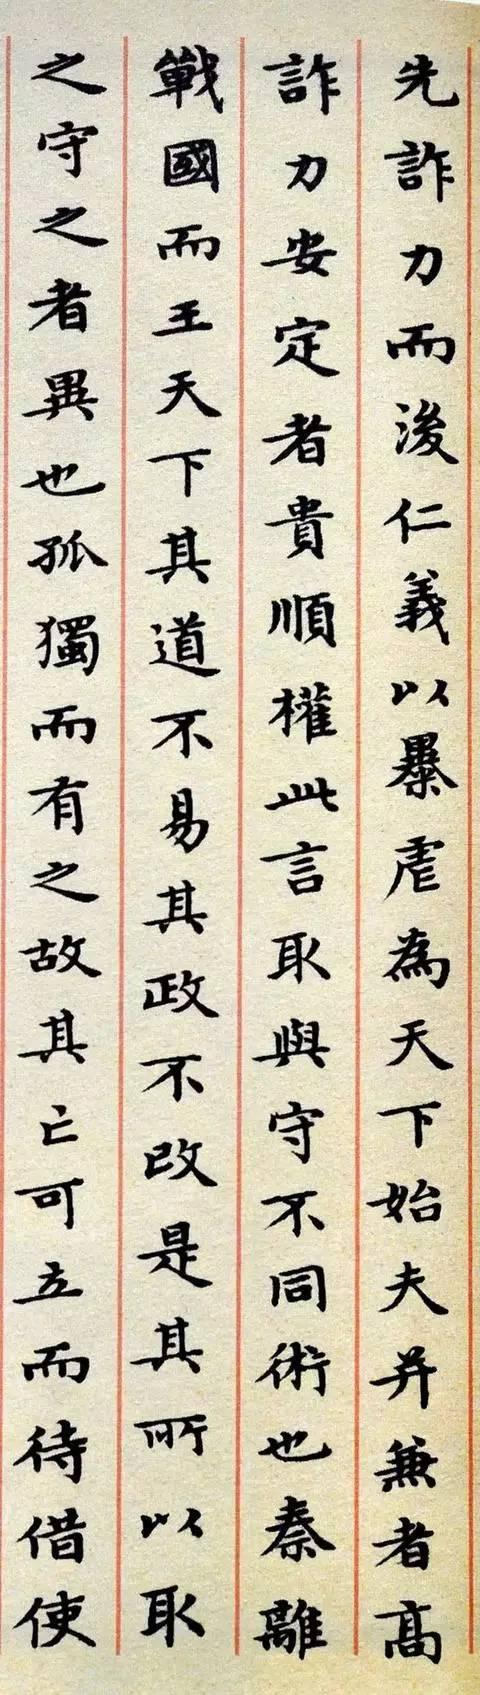 先詐力而後仁義以暴虐為天下始夫并兼者高
詐力安定者貴順權此言取與守不同術也秦離
戰國而王天下其道不易其政不改是其所以取
之守之者異也孤獨而有之故其亡可立而待借使